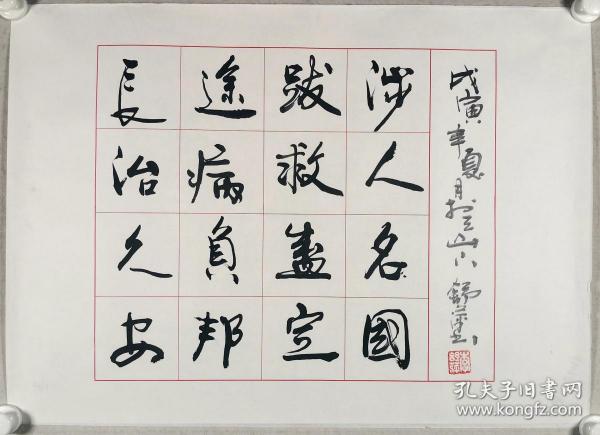 長途跋涉
治病救人
久負盛名
安邦定國
戊寅年夏月山下舒
孔夫子旧书网
www.kongfz.com